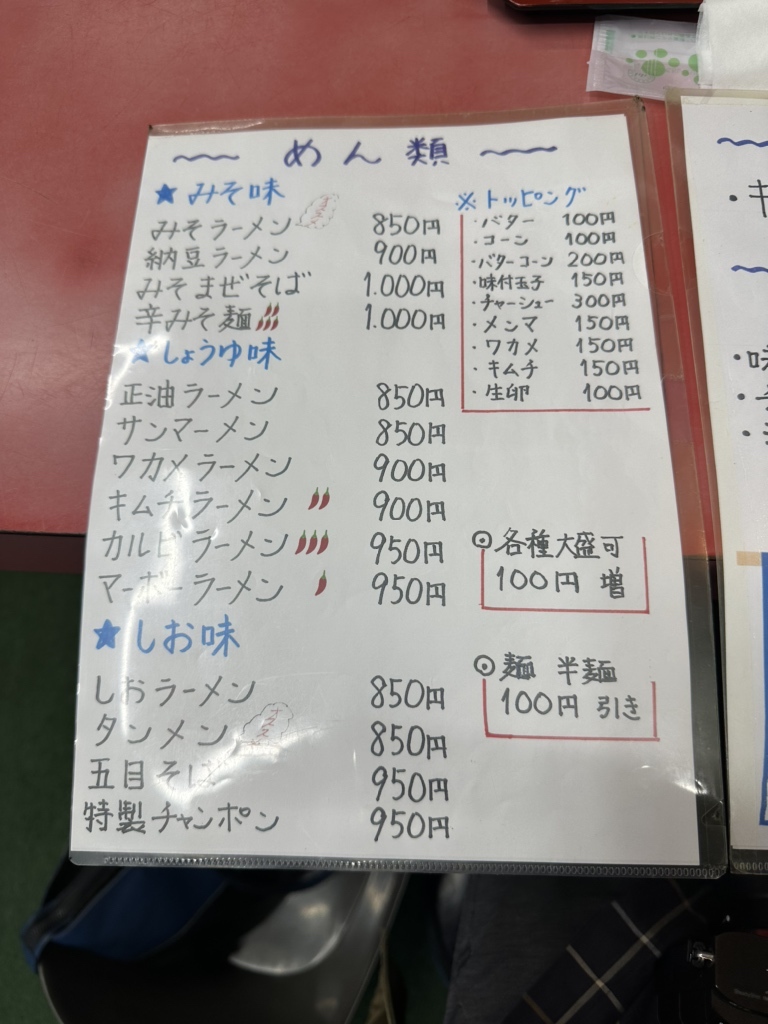 〜 めん類 〜
★ みそ味
みそラーメン 850円
納豆ラーメン 900円
みそまぜそば 1.000円
辛みそ麺 1.000円
★ しょうゆ味
正油ラーメン 850円
サンマーメン 850円
ワカメラーメン 900円
キムチラーメン 900円
カルビラーメン 950円
マーボーラーメン 950円
★ しお味
しおラーメン 850円
タンメン 850円
五目そば 950円
特製チャンポン 950円
※ トッピング
・バター 100円
・コーン 100円
・バターコーン 200円
・味付玉子 150円
・チャーシュー 300円
・メンマ 150円
・ワカメ 150円
・キムチ 150円
・生卵 100円
◎各種大盛可
100円 増
◎麺 半麺
100円 引き